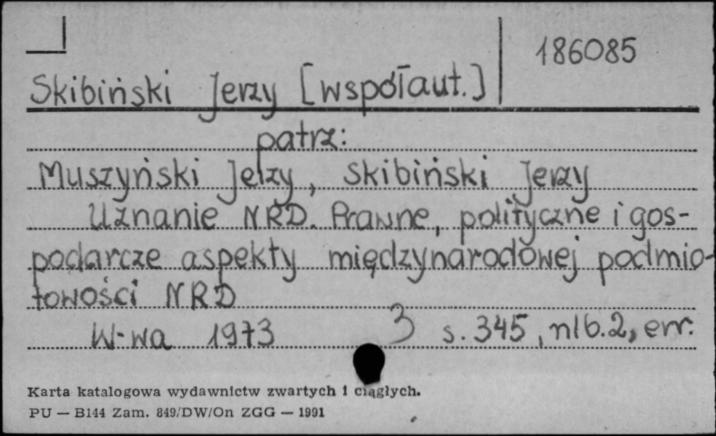 186085
Skibiński Jerzy [współaut.]
patrz:
Muszyński Jerzy, Skibiński Jerzy
Uznanie NRD. Prawne, polityczne i gos-
podarcze aspekty międzynarodowej podmio-
towości NRD
W-wa 1973 3 s. 345, nlb. 2, err.
Karta katalogowa wydawnictw zwartych i ciągłych.
PU — B144 Zam. 849/DW/On ZGG — 1991